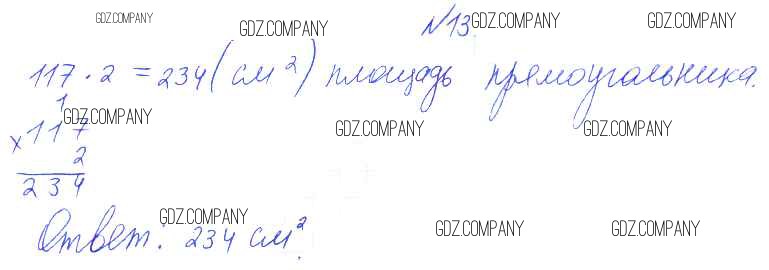 GDZ.COMPANY GDZ.COMPANY №13. GDZ.COMPANY GDZ.COMPANY
117 · 2 = 234 (см²) площадь прямоугольника.
1
GDZ.COMPANY GDZ.COMPANY GDZ.COMPANY
× 117
2
234
GDZ.COMPANY GDZ.COMPANY GDZ.COMPANY
Ответ: 234 см².